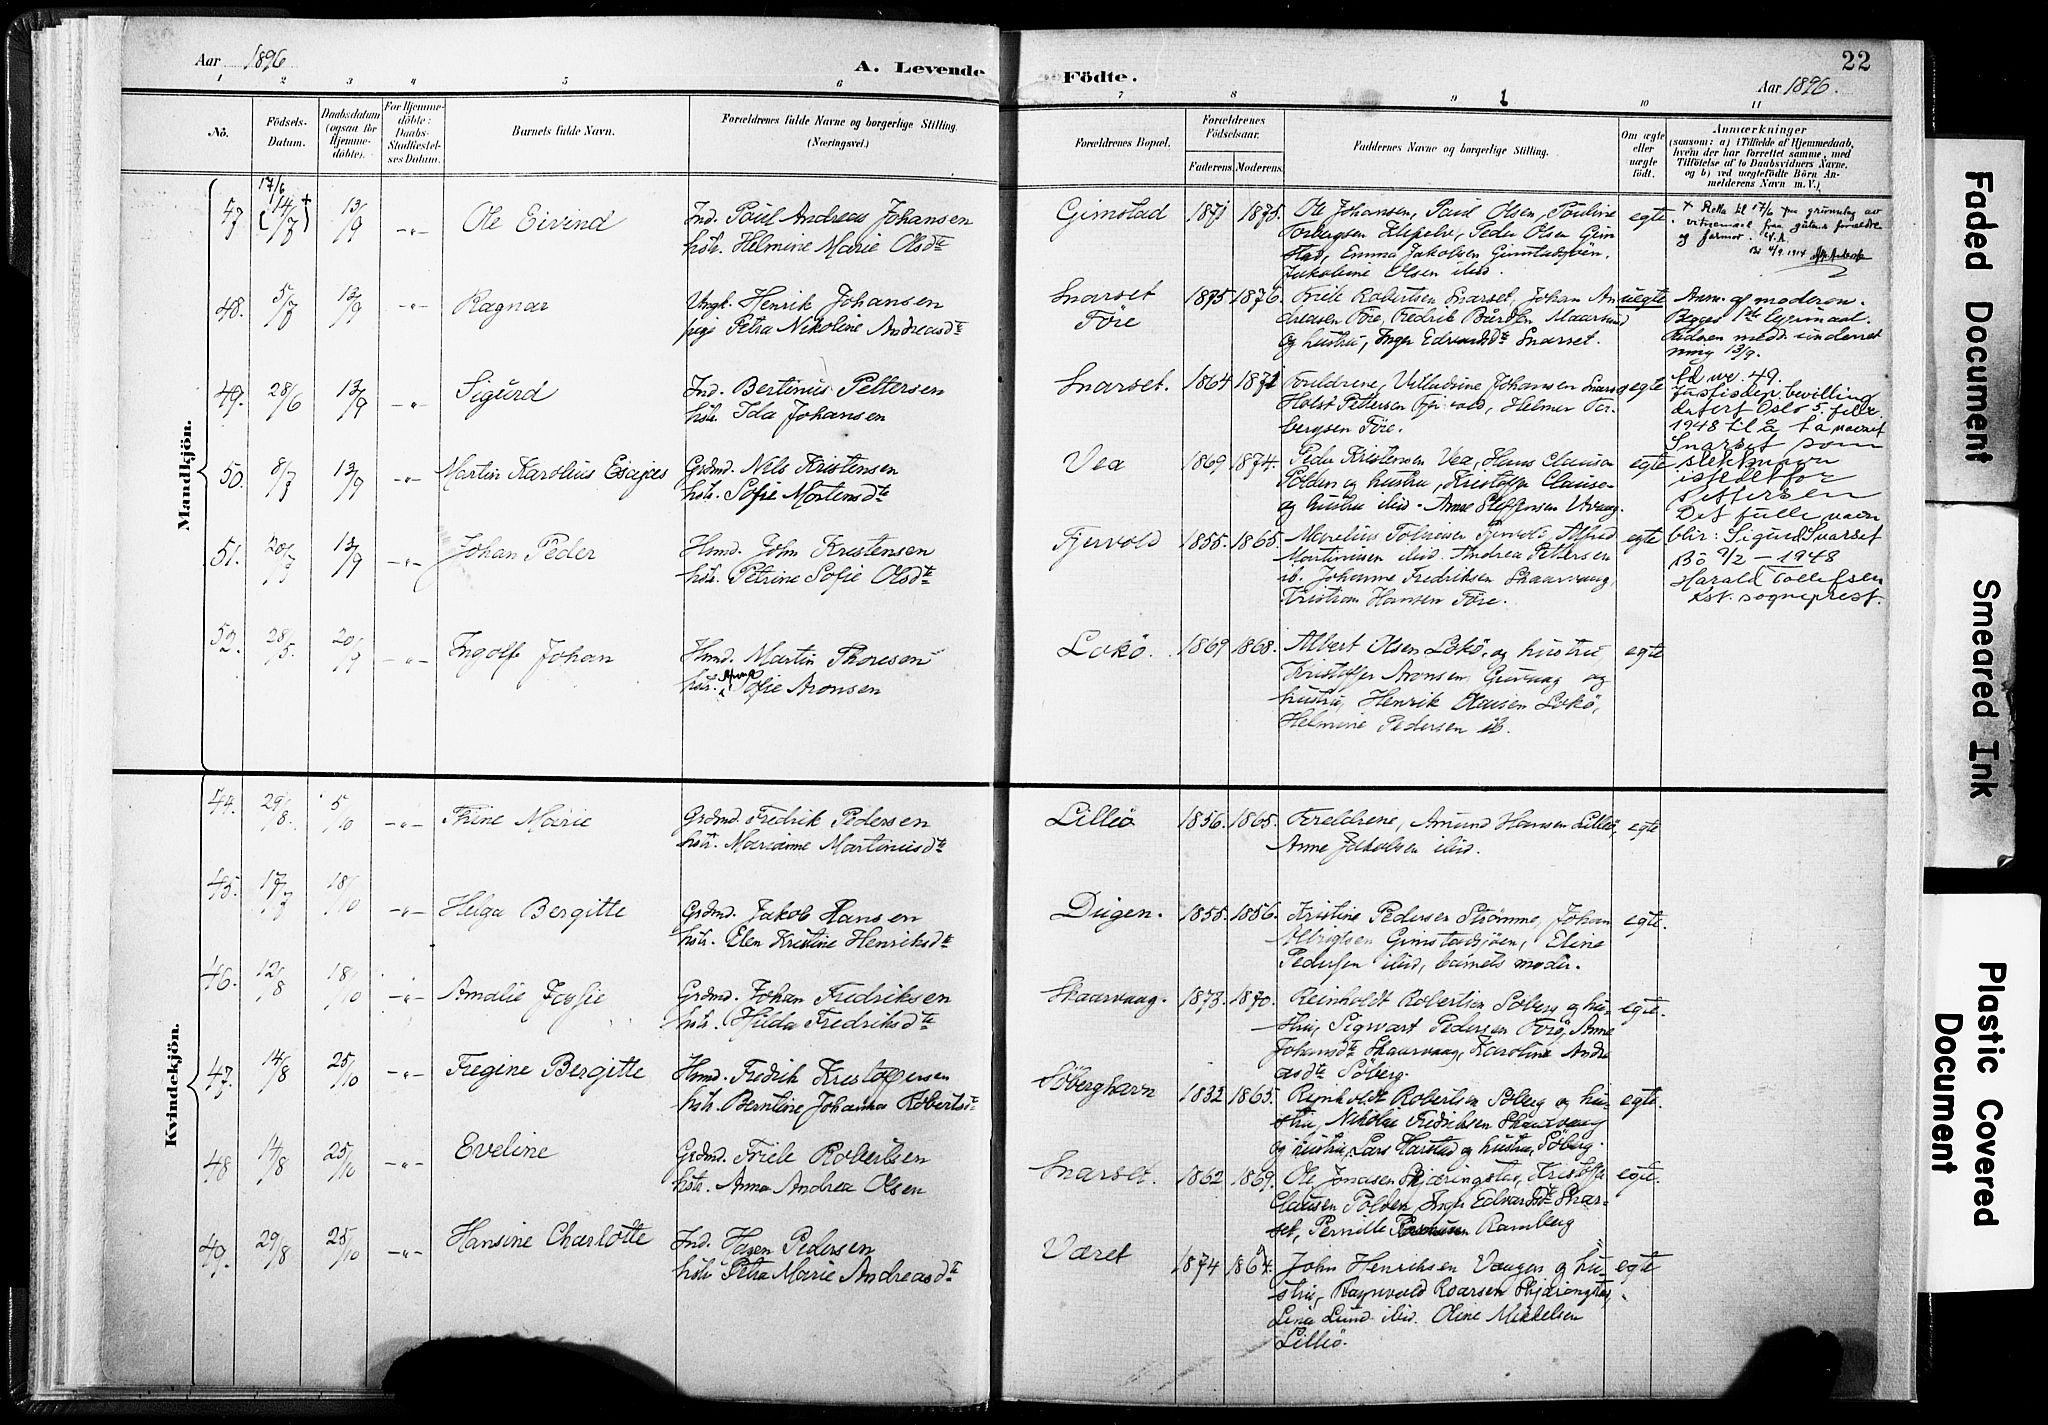 Aar 1896
A. Levende Födte.
22
Aar 1896.
1 2 3 4 5 6 7 8 9 10 11
No.
Födsels-
Datum.
Daabsdatum
(ogsaa for
Hjemme-
döbte).
For Hjemme-
döbte:
Daabs-
Stadfæstel-
ses Datum.
Barnets fulde Navn.
Forældrenes fulde Navne og borgerlige Stilling.
(Næringsvei.)
Forældrenes Bopæl.
Forældrenes
Födselsaar.
Faderens Moderens.
Faddernes Navne og borgerlige Stilling.
Om ægte
eller
uægte
födt.
Anmærkninger
(saasom: a) i Tilfælde af Hjemmedaab,
hvem der har forrettet samme, med
Tilföielse af to Daabsvidners Navne,
og b) ved uægtefödte Börn An-
melderens Navn m. V.)
Mandkjön.
47 17/6 (14/7)+ 13/9 -„- Ole Eivind
Ind. Paul Andreas Johansen
hstr. Helmine Marie Olsdtr
Gimstad 1871 1875.
Ole Johansen, Paul Olsen, Pauline
Torbergsen Klepelv, Peder Olsen Gim
stad, Emma Jakobsen Gimstadsjöen,
Jakobine Olsen ibid.
egte
+ Retta til 17/6 paa grunnlag av
vitnemaal fraa
og farmor.
Bö 4/9 1914
48. 5/7 13/9 -„- Ragnar
Ungk. Henrik Johansen
pige Petra Nikoline Andreasdtr
Snarset
Före
1875 1876.
Friele Robertsen Snarset, Johan An
dreasen Före, Fredrik Bårdsen Maarsund
og hustru, Inger Edvardsdtr Snarset.
uegte
Anm. af moderen.
Begges 1ste leiermaal.
Faderen medd. underret
ning 13/9.
49. 28/6 13/9 -„- Sigurd
Ind. Bertinus Pettersen
hstr. Ida Johansen
Snarset. 1864 1871
Foreldrene, Villadine Johansen Snarset
Holst Pettersen Fjervold, Helmer Tor-
bergsen Före.
egte
Ad nr. 49.
Justisdep. bevilling
datert Oslo 5. febr.
1948 til å ta navnet
Snarset som
slektsnavn
istedetfor
Pettersen
Det fulle navn
blir: Sigurd Snarset
Bö 9/2 – 1948
Harald Tollefsen
Kst. sogneprest.
50. 8/7 13/9 -„- Martin Karolius Esajas
Grdmd. Nels Kristensen
hstr. Sofie Mortensdtr
Vea 1869 1874.
Peder Kristensen Vea, Hans Clausen
Polden og hustru, Kristoffer Clausen
og hustru ibid. Anne Steffensen Utvaag.
egte
51. 20/7 13/9 -„- Johan Peder
Hsmd. John Kristensen
hstr. Petrine Sofie Olsdtr
Fjervold 1855. 1865.
Marelius Tobiesen Fjervold, Alfred
Martinsen ibid. Andrea Pettersen
ib. Johanne Fredriksen Skaarvaag,
Kristian Hansen Före.
egte
52. 28/5. 20/9 -„- Ingolf Johan
Hsmd. Martin Thoresen
hstr. Anna Sofie Aronsen
Lokö. 1869 1868.
Albert Olsen Lokö, og hustru
Kristoffer Aronsen, Guvaag og
hustru, Henrik Olausen Lokö,
Helmine Pedersen ib.
egte
Kvindekjön.
44. 29/8. 5/10 -„- Thine Marie
Grdmd. Fredrik Pedersen
hstr. Marianne Martinusdtr
Lilleö 1856. 1865.
Foreldrene, Amund Hansen Lilleö,
Anne Jakobsen ibid.
egte
45. 17/7 18/10 -„- Helga Bergitte
Grdmd. Jakob Hansen
hstr. Elen Kristine Henriksdtr
Digen. 1855. 1856.
Kristine Pedersen Strömme, Johan
Albrigtsen Gimstadsjöen, Eline
Pedersen ibid, barnets moder.
egte.
46. 12/8 18/10 -„- Amalie Josfie
Grdmd. Johan Fredriksen
hstr. Hilda Fredriksdtr
Skaarvaag. 1873. 1870.
Reinholdt Robertsen Söberg og hu-
stru, Sigvart Pedersen Forö, Anne
Johansdtr Skaarvaag, Karoline Andre
asdtr Söberg.
egte.
47. 14/8 25/10 -„- Fregine Bergitte
Hsmd. Fredrik Kristoffersen
hstr. Berntine Johanna Robertsdtr
Söberghavn 1832 1865.
Reinholdt Robertsen Söberg og hu-
stru, Nikolai Fredriksen Skaarvaag
og hustru, Lars Harstad og hustru, Söberg.
egte.
48 14/8 25/10 -„- Eveline
Grdmd. Friele Robertsen
hstr. Anna Andrea Olsen
Snarset. 1862 1869.
Ole Jonasen Skjæringstad, Kristoffer
Clausen Polden, Inger Edvardsdtr Snar-
set, Pernille Ramberg
egte.
49. 29/8 25/10 -„- Hansine Charlotte
Ind. Hagen Pedersen
hstr Petra Marie Andreasdtr
Været 1874 1864.
John Henriksen Vaagen og hu-
stru, Ragnvald Roarsen Skjæringstad,
Lina Lund ibid. Oline Mikkelsen
Lilleö.
egte
Faded Document
Smeared Ink
Plastic Covered
Document